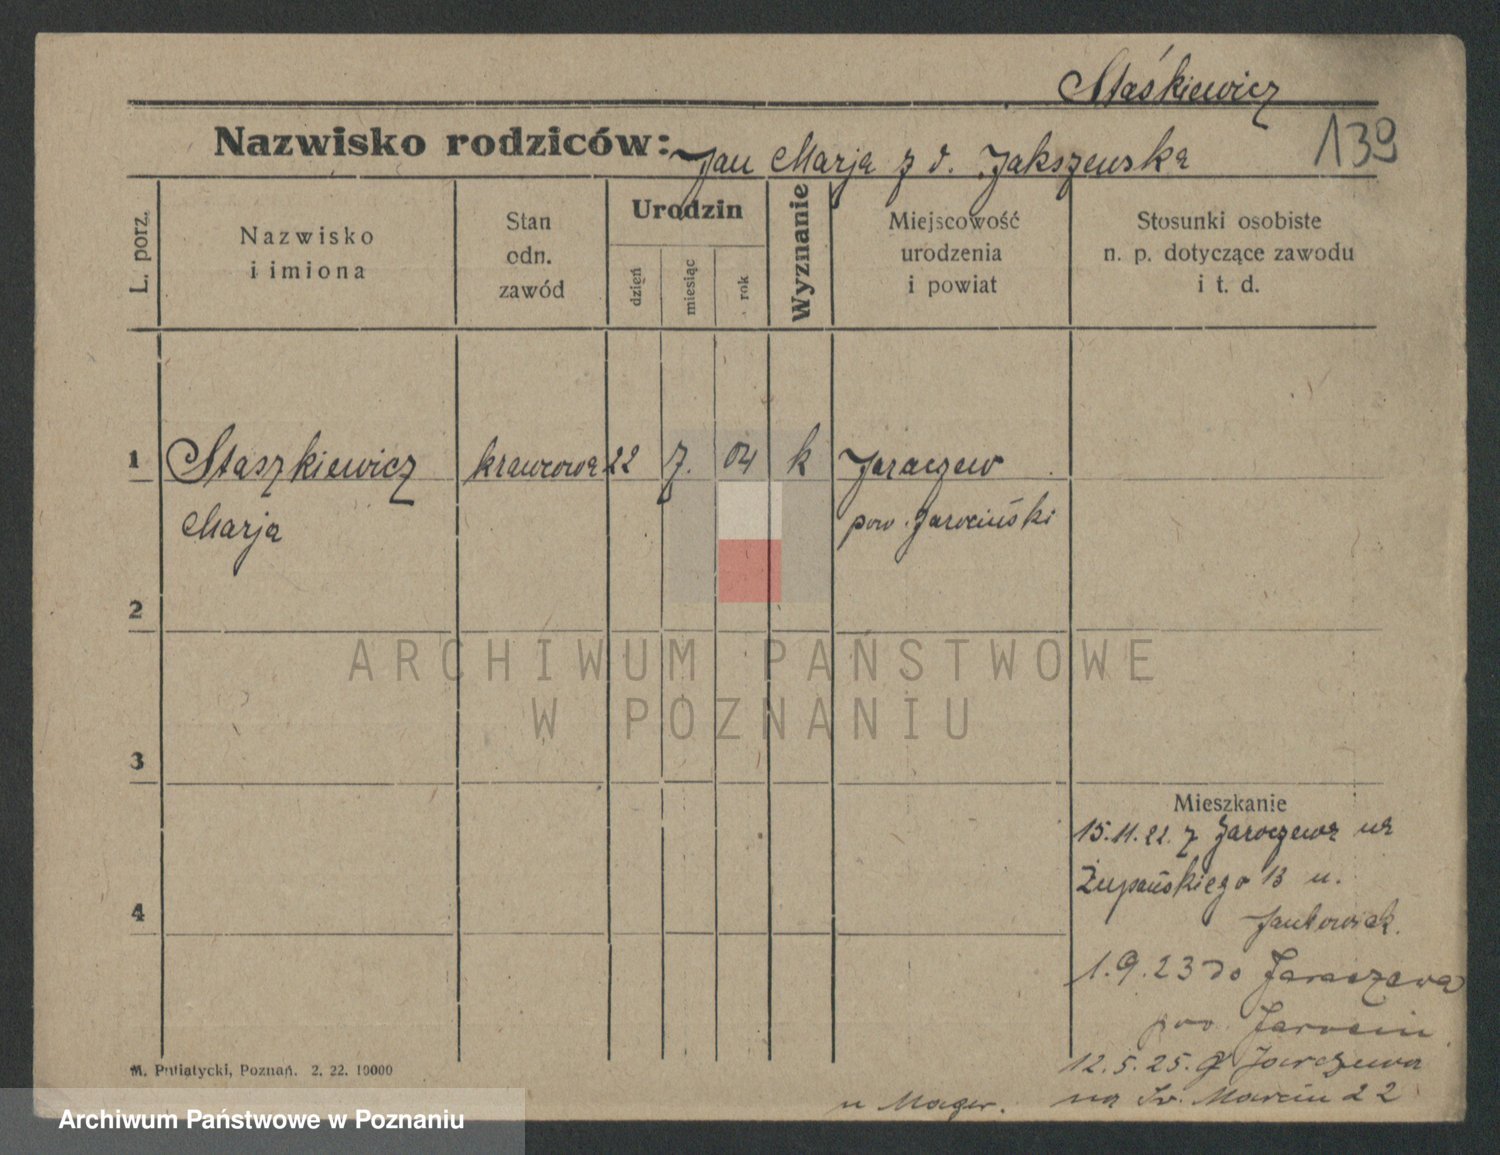 Staśkiewicz
Nazwisko rodziców: Jan Marja z d. Jakszewska
139
L. porz.
Nazwisko
i imiona
Stan
odn.
zawód
Urodzin
dzień
miesiąc
rok
Wyznanie
Miejscowość
urodzenia
i powiat
Stosunki osobiste
n. p. dotyczące zawodu
i t. d.
1 Staszkiewicz krawcowa 22 7. 04 k Jaraczew
Marja pow. Jarociński
2
ARCHIWUM PAŃSTWOWE
W POZNANIU
3
Mieszkanie
15.11.22. z Jaraczewa na
Żupańskiego 13 u.
Jankowiak.
4
1.9.23 do Jaraczewa
pow. Jarocin
12.5.25. z Jaraczewa
na Św. Marcin 22
u Mager.
M. Putiatycki, Poznań. 2. 22. 10000
Archiwum Państwowe w Poznaniu